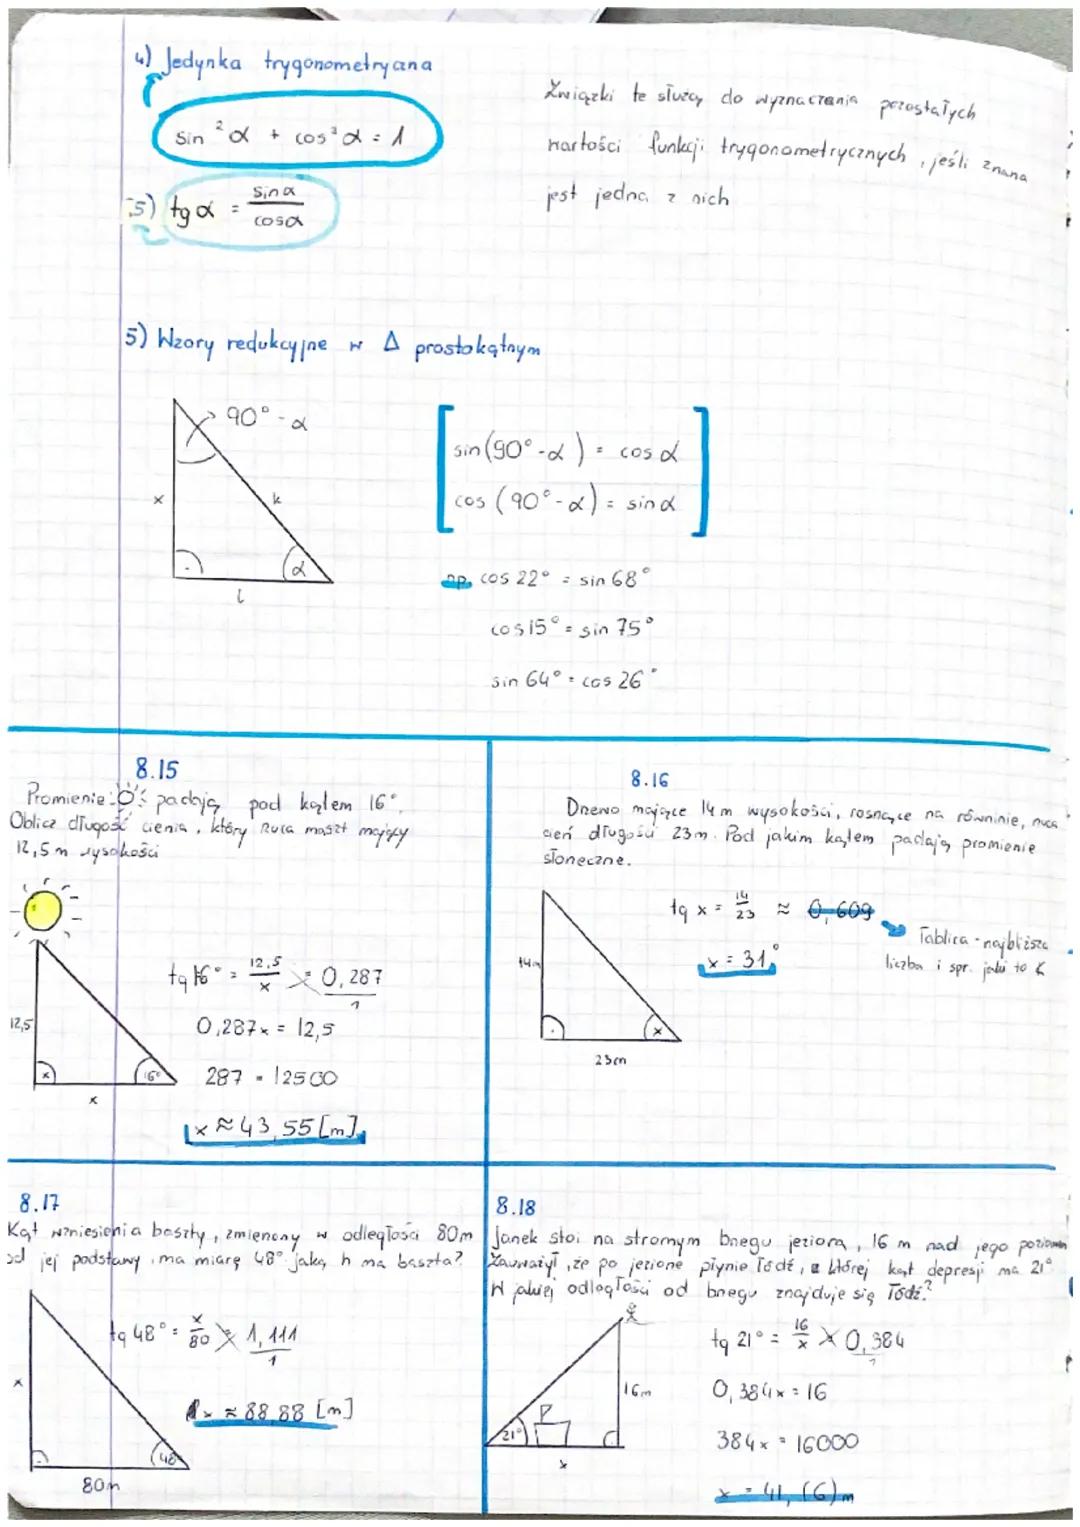 4) Jedynka trygonometryczna
sin²α + cos²α = 1
5) tg α = sinα / cosα
Związki te służą do wyznaczania pozostałych
wartości funkcji trygonometrycznych, jeśli znana
jest jedna z nich
5) Wzory redukcyjne w Δ prostokątnym
90° - α
x
k
α
l
sin(90° - α) = cos α
cos (90° - α) = sin α
np. cos 22° = sin 68°
cos 15° = sin 75°
sin 64° = cos 26°
8.15
Promienie padają pod kątem 16°.
Oblicz długość cienia, który rzuca maszt mający
12,5 m wysokości
12,5
16°
x
tg 16° = 12,5 / x = 0,287 / 1
0,287x = 12,5
287 = 12500
x ≈ 43,55 [m]
8.16
Drzewo mające 14 m wysokości, rosnące na równinie, rzuca
cień długości 23 m. Pod jakim kątem padają promienie
słoneczne.
14m
x
23m
tg x = 14 / 23 ≈ 0,609
x = 31°
Tablica - najbliższa
liczba i spr. jaki to ∢
8.17
Kąt wzniesienia baszty, zmierzony w odległości 80m
od jej podstawy, ma miarę 48° jaką h ma baszta?
x
48
80m
tg 48° = x / 80 = 1,111 / 1
x ≈ 88,88 [m]
8.18
Janek stoi na stromym brzegu jeziora, 16 m nad jego poziomem
Zauważył, że po jeziorze płynie łódź, której kąt depresji ma 21°
W jakiej odległości od brzegu znajduje się łódź?
16m
21°
x
tg 21° = 16 / x 0,384 / 1
0,384x = 16
384x = 16000
x = 41,(6) m